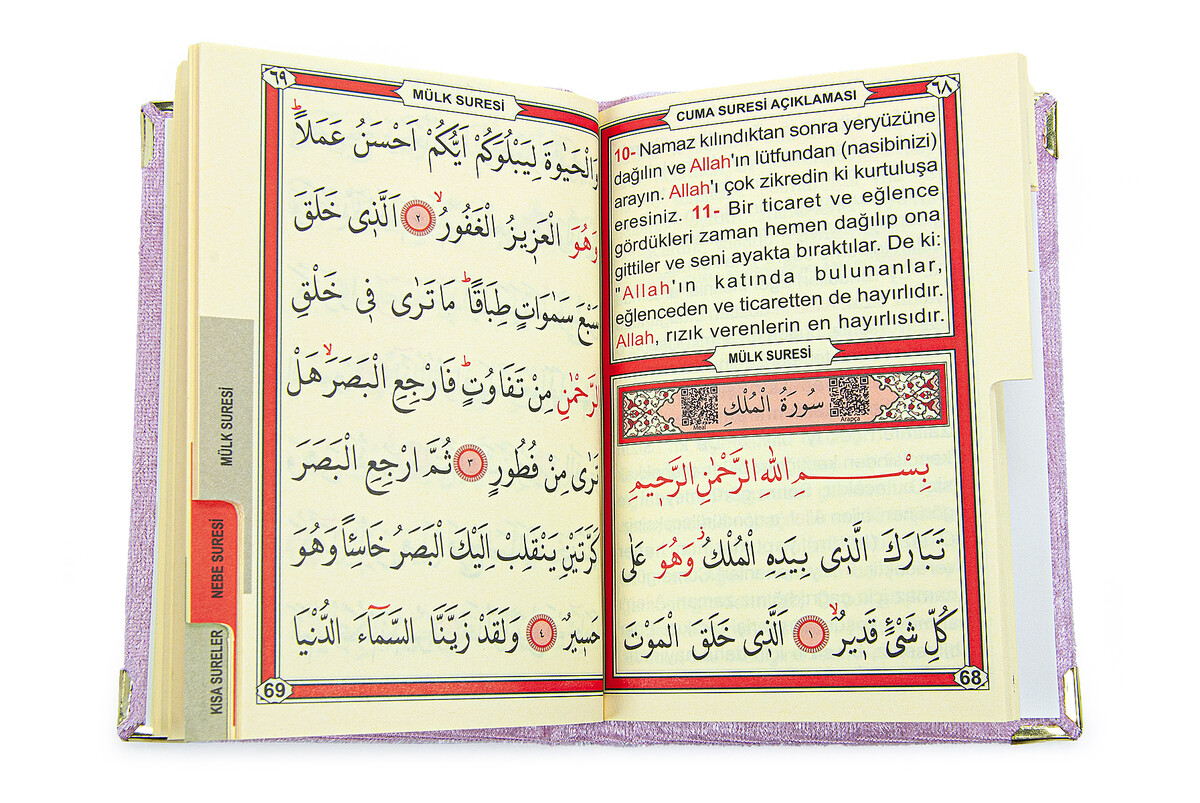 ٦٨
CUMA SURESİ AÇIKLAMASI
10- Namaz kılındıktan sonra yeryüzüne
dağılın ve Allah'ın lütfundan (nasibinizi)
arayın. Allah'ı çok zikredin ki kurtuluşa
eresiniz. 11- Bir ticaret ve eğlence
gördükleri zaman hemen dağılıp ona
gittiler ve seni ayakta bıraktılar. De ki:
"Allah'ın katında bulunanlar,
eğlenceden ve ticaretten de hayırlıdır.
Allah, rızık verenlerin en hayırlısıdır.
MÜLK SURESİ
سُورَةُ الْمُلْكِ
Meal
Arapça
بِسْمِ اللهِ الرَّحْمٰنِ الرَّحِيمِ
تَبَارَكَ الَّذِى بِيَدِهِ الْمُلْكُ ز وَهُوَ عَلٰى
كُلِّ شَىْءٍ قَدِيرٌ ۙ ١ اَلَّذِى خَلَقَ الْمَوْتَ
68
٦٩
MÜLK SURESİ
وَالْحَيٰوةَ لِيَبْلُوَكُمْ اَيُّكُمْ اَحْسَنُ عَمَلًا ط
وَهُوَ الْعَزِيزُ الْغَفُورُ ۙ ٢ اَلَّذِى خَلَقَ
سَبْعَ سَمٰوَاتٍ طِبَاقًا ط مَا تَرٰى فِى خَلْقِ
الرَّحْمٰنِ مِنْ تَفَاوُتٍ ط فَارْجِعِ الْبَصَرَ ۙ هَلْ
تَرٰى مِنْ فُطُورٍ ٣ ثُمَّ ارْجِعِ الْبَصَرَ
كَرَّتَيْنِ يَنْقَلِبْ اِلَيْكَ الْبَصَرُ خَاسِئًا وَهُوَ
حَسِيرٌ ٤ وَلَقَدْ زَيَّنَّا السَّمَآءَ الدُّنْيَا
69
MÜLK SURESİ
NEBE SURESİ
KISA SURELER